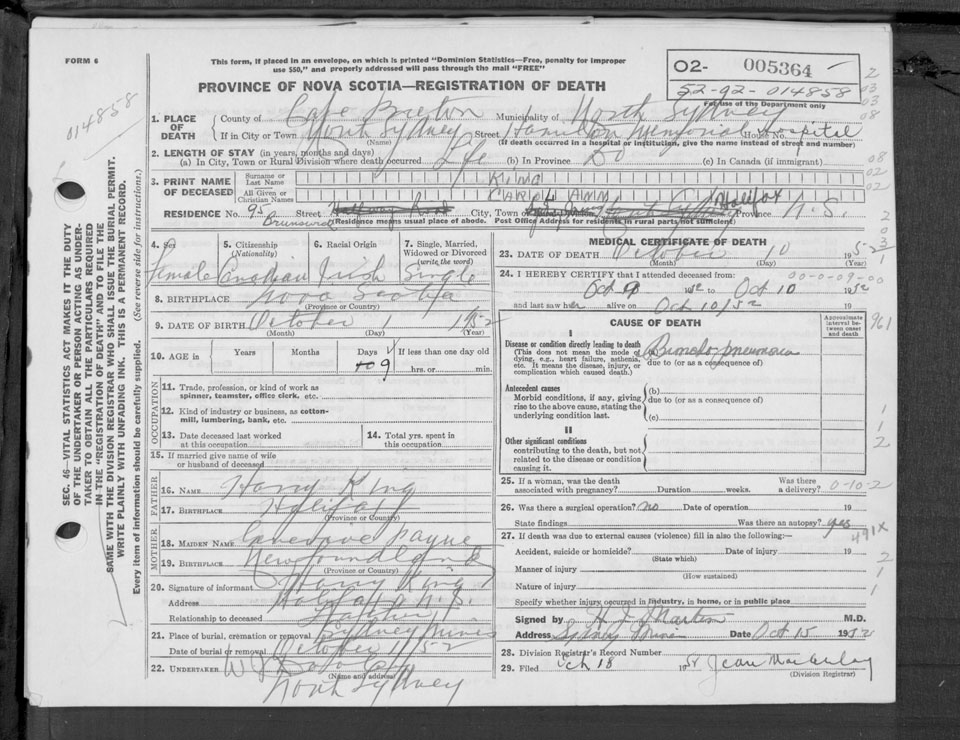 FORM 6
This form, if placed in an envelope, on which is printed "Dominion Statistics—Free, penalty for improper
use $50," and properly addressed will pass through the mail "FREE"
PROVINCE OF NOVA SCOTIA—REGISTRATION OF DEATH
O2- 005364
52-92-014858
For use of the Department only
014858
SEC. 46—VITAL STATISTICS ACT MAKES IT THE DUTY
OF THE UNDERTAKER OR PERSON ACTING AS UNDER-
TAKER TO OBTAIN ALL THE PARTICULARS REQUIRED
IN THE "REGISTRATION OF DEATH" AND TO FILE THE
SAME WITH THE DIVISION REGISTRAR WHO SHALL ISSUE THE BURIAL PERMIT.
WRITE PLAINLY WITH UNFADING INK. THIS IS A PERMANENT RECORD.
Every item of information should be carefully supplied. (See reverse side for instructions.)
1. PLACE OF DEATH
County of Cape Breton Municipality of North Sydney
If in City or Town North Sydney Street Hamilton Memorial House No. Hospital
(Name) (If death occurred in a hospital or institution, give the name instead of street and number)
2. LENGTH OF STAY (in years, months and days)
(a) In City, Town or Rural Division where death occurred Life (b) In Province Do (c) In Canada (if immigrant)
3. PRINT NAME OF DECEASED
Surname or Last Name KING
All Given or Christian Names ANN
RESIDENCE No. 95 Street Brunswick City, Town or Halifax Province N.S.
(Residence means usual place of abode. Post Office Address for residents in rural parts not sufficient)
4. Sex Female
5. Citizenship (Nationality) Canadian
6. Racial Origin Irish
7. Single, Married, Widowed or Divorced (write the word) Single
8. BIRTHPLACE Nova Scotia
(Province or Country)
9. DATE OF BIRTH October 1 1952
(Month) (Day) (Year)
10. AGE in Years Months Days 9 If less than one day old
hrs. or min.
OCCUPATION
11. Trade, profession, or kind of work as
spinner, teamster, office clerk, etc.
12. Kind of industry or business, as cotton-
mill, lumbering, bank, etc.
13. Date deceased last worked
at this occupation
14. Total yrs. spent in
this occupation
15. If married give name of wife
or husband of deceased
FATHER
16. NAME Harry King
17. BIRTHPLACE Halifax
(Province or Country)
MOTHER
18. MAIDEN NAME Genevieve Payne
19. BIRTHPLACE Newfoundland
(Province or Country)
20. Signature of informant Harry King
Address Halifax N.S.
Relationship to deceased Father
21. Place of burial, cremation or removal Sydney Mines
Date of burial or removal October 11/52
22. UNDERTAKER
(Name and address)
North Sydney
MEDICAL CERTIFICATE OF DEATH
23. DATE OF DEATH October 10 1952
(Month) (Day) (Year)
24. I HEREBY CERTIFY that I attended deceased from:
Oct 9 1952 to Oct 10 1952
and last saw her alive on Oct 10/52 19
CAUSE OF DEATH
Approximate interval between onset and death
I
Disease or condition directly leading to death
(This does not mean the mode of dying, e.g., heart failure, asthenia, etc. It means the disease, injury, or complication which caused death.)
(a) Broncho pneumonia
due to (or as a consequence of)
Antecedent causes
Morbid conditions, if any, giving rise to the above cause, stating the underlying condition last.
(b)
due to (or as a consequence of)
(c)
II
Other significant conditions
contributing to the death, but not related to the disease or condition causing it.
25. If a woman, was the death
associated with pregnancy? Duration weeks. Was there
a delivery? 0-10-2
26. Was there a surgical operation? no Date of operation 19
State findings Was there an autopsy? yes
491X
27. If death was due to external causes (violence) fill in also the following:—
Accident, suicide or homicide? Date of injury 19
(State which)
Manner of injury
(How sustained)
Nature of injury
Specify whether injury occurred in industry, in home, or in public place
Signed by H. J. Martin M.D.
Address Sydney Mines Date Oct 15 1952
28. Division Registrar's Record Number
29. Filed Oct 18 1952
(Division Registrar)